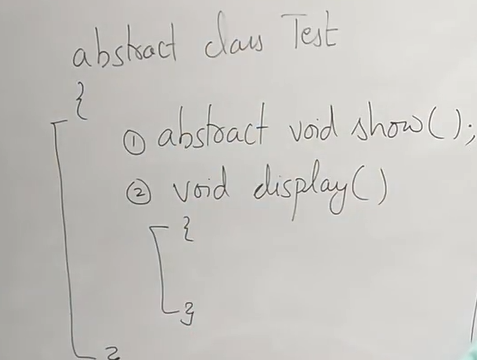 abstract class Test
{
① abstract void show();
② void display()
{
}
}